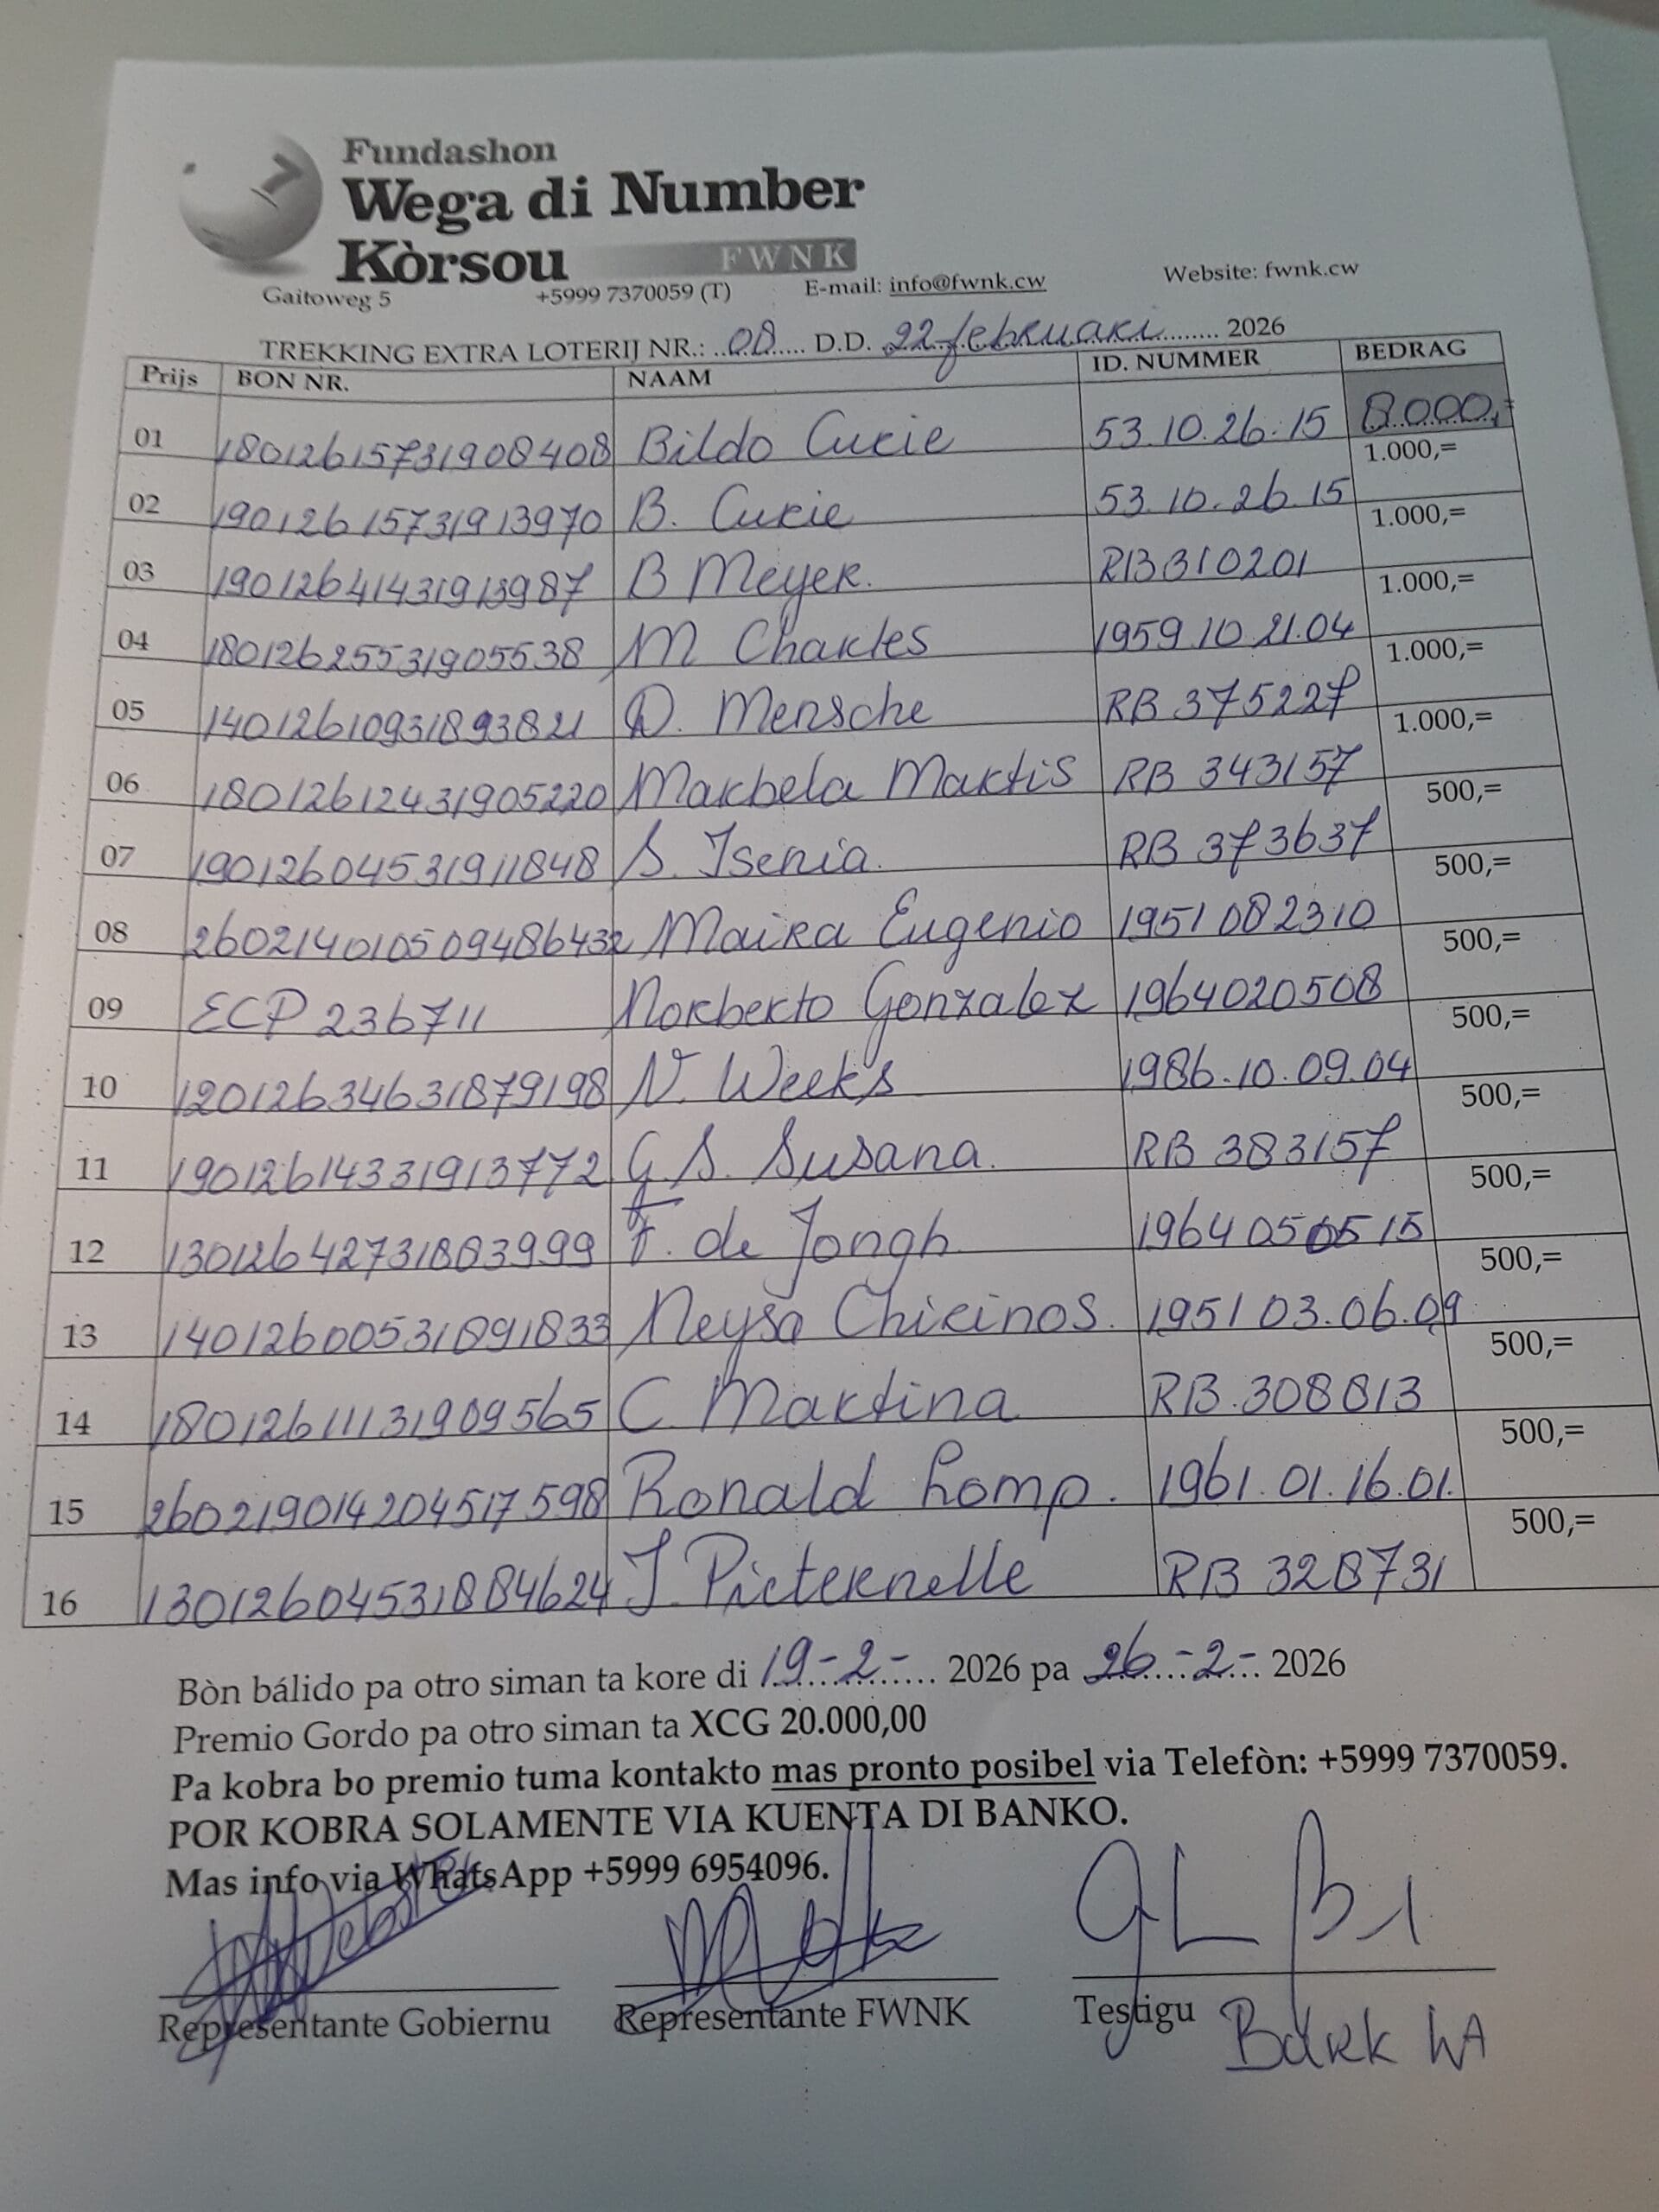 Fundashon
Wega di Number
Kòrsou FWNK
Gaitoweg 5 +5999 7370059 (T) E-mail: info@fwnk.cw Website: fwnk.cw
TREKKING EXTRA LOTERIJ NR.: ..08...... D.D. 22 februari ........ 2026
Prijs BON NR. NAAM ID. NUMMER BEDRAG
01 18012615731908408 Bildo Curie 53.10.26.15 8.000,=
02 19012615731913970 B. Curie 53.10.26.15 1.000,=
03 19012641431913987 B Meyer. RB310201 1.000,=
04 18012625531905538 M Charles 1959.10.21.04 1.000,=
05 14012610931893821 D. Mensche RB 375227 1.000,=
06 18012612431905220 Marbela Martis RB 343157 1.000,=
07 19012604531911848 S. Isenia. RB 373637 500,=
08 260214010509486432 Maira Eugenio 1951082310 500,=
09 ECP 236711 Norberto Gonzalez 1964020508 500,=
10 12012634631879198 N. Weeks 1986.10.09.04 500,=
11 19012614331913772 G.S. Susana. RB 383157 500,=
12 13012642731883999 F. de Jongh 1964050515 500,=
13 14012600531891833 Neysa Chirinos. 1951 03.06.09 500,=
14 18012611131909565 C. Martina RB.308813 500,=
15 260219014204517598 Ronald Lomp. 1961.01.16.01. 500,=
16 13012604531884624 J. Pieternelle RB 328731 500,=
Bòn bálido pa otro siman ta kore di 19-2-........ 2026 pa 26-2-... 2026
Premio Gordo pa otro siman ta XCG 20.000,00
Pa kobra bo premio tuma kontakto mas pronto posibel via Telefòn: +5999 7370059.
POR KOBRA SOLAMENTE VIA KUENTA DI BANKO.
Mas info via WhatsApp +5999 6954096.
Representante Gobiernu Representante FWNK Testigu